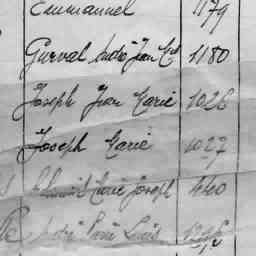 Emmanuel 1179
Gurval André Jean Md 1180
Joseph Jean Marie 1026
Joseph Marie 1027
Marie Joseph 440
André Louis